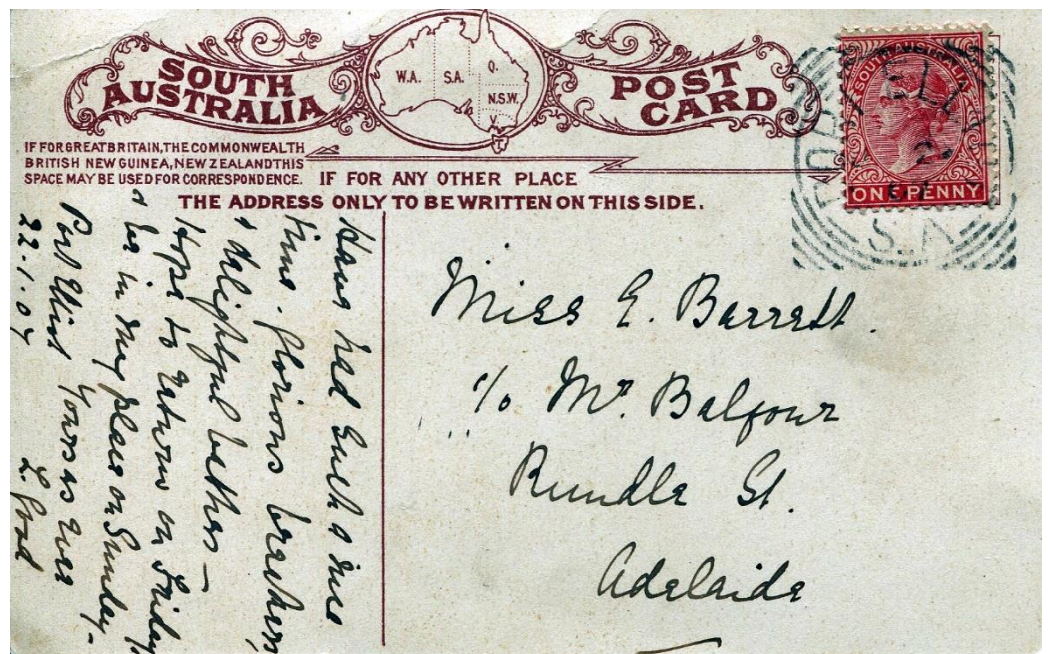 SOUTH
AUSTRALIA
W.A. S.A. Q.
N.S.W.
V.
T.
POST
CARD
SOUTH AUSTRALIA
ONE PENNY
PORT ELLIOT
2
S.A
IF FOR GREAT BRITAIN, THE COMMONWEALTH
BRITISH NEW GUINEA, NEW ZEALAND THIS
SPACE MAY BE USED FOR CORRESPONDENCE.
IF FOR ANY OTHER PLACE
THE ADDRESS ONLY TO BE WRITTEN ON THIS SIDE.
Have had such a nice
time. Glorious breakers,
& delightful bathes –
Hope to return on Friday,
& be in my place on Sunday –
Yours as ever
L. Good
Port Elliot
22.1.07
Miss E. Barrett.
c/o Mr. Balfour
Rundle St.
Adelaide